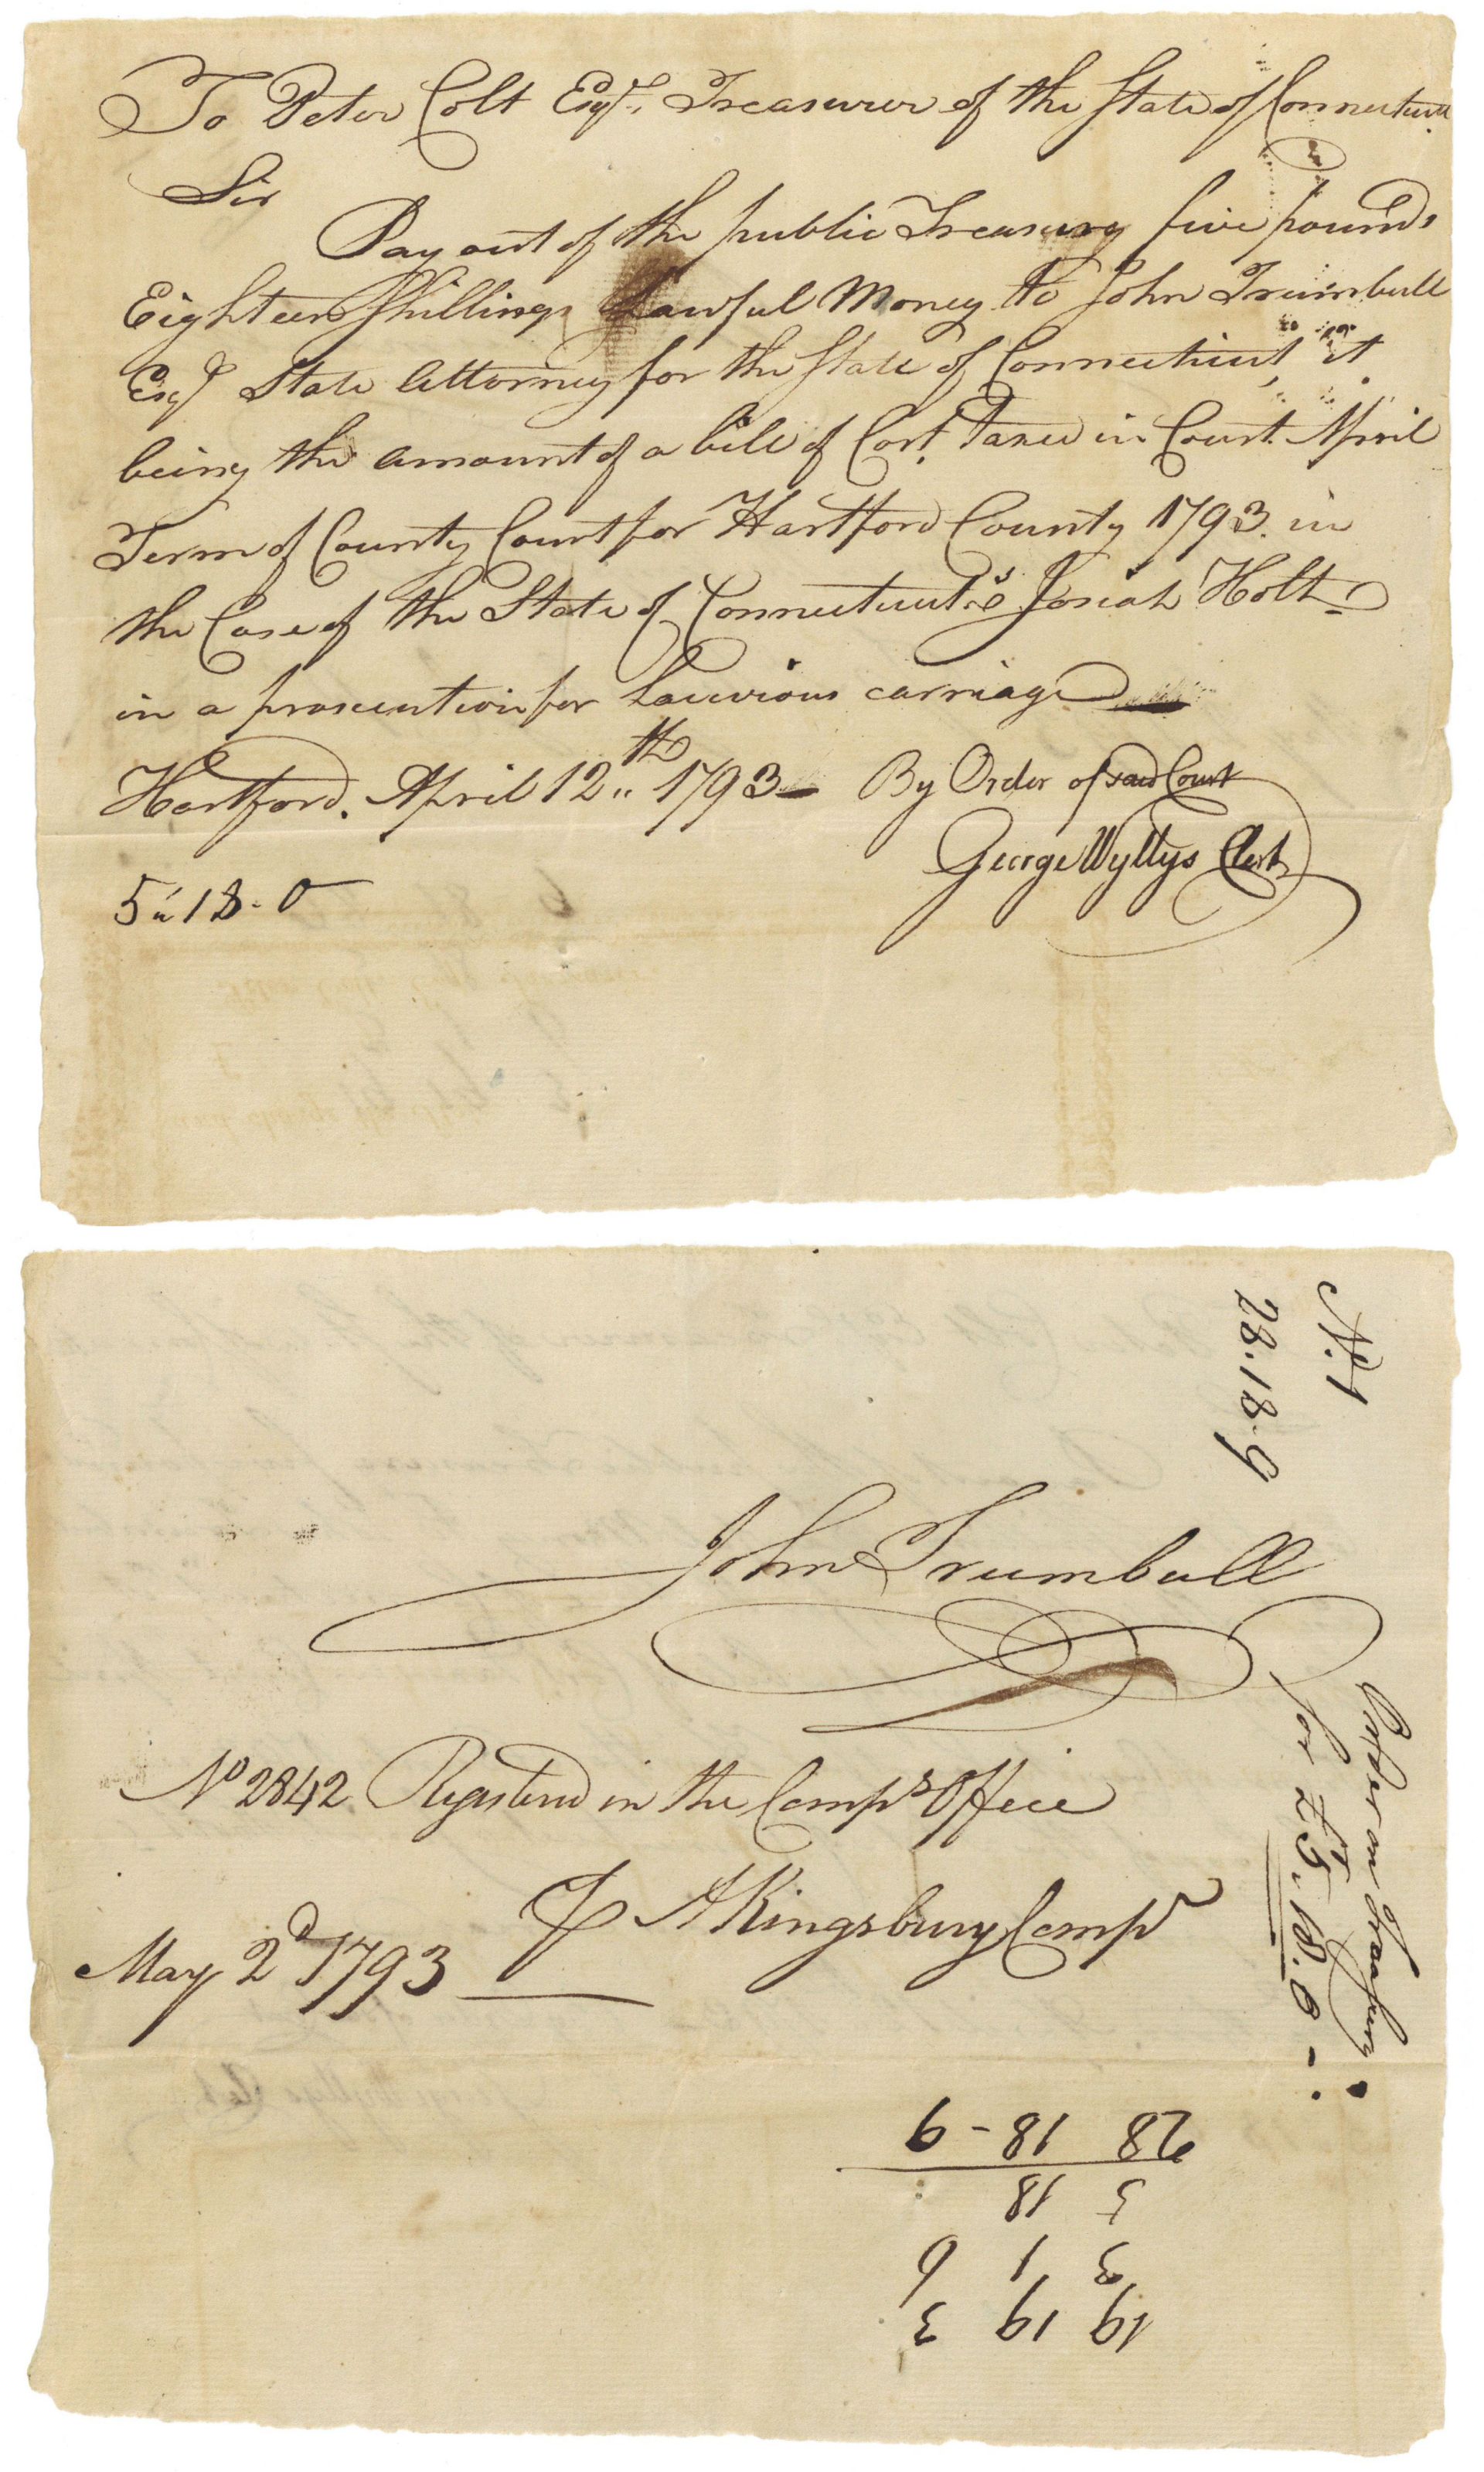 To Peter Colt Esqr. Treasurer of the State of Connecticut
Sir
Pay out of the public Treasury five pounds
Eighteen Shillings Lawful Money to John Trumbull
Esqr State Attorney for the State of Connecticut, it
being the amount of a bill of Cost Taxed in Court April
Term of County Court for Hartford County 1793. in
the Case of the State of Connecticut vs Josiah Holt
in a prosecution for Lascivious carriage
Hartford. April 12th 1793 By Order of said Court
George Wyllys Clerk
5 " 18 - 0
No. 1
28.18.9
John Trumbull
Order on Treasury
for £5.. 18. 0 -
No 2842 Registered in the Comps Office
P AKingsbury Compr
May 2d 1793
19 19 3
3 1 6
5 18
28 18 - 9